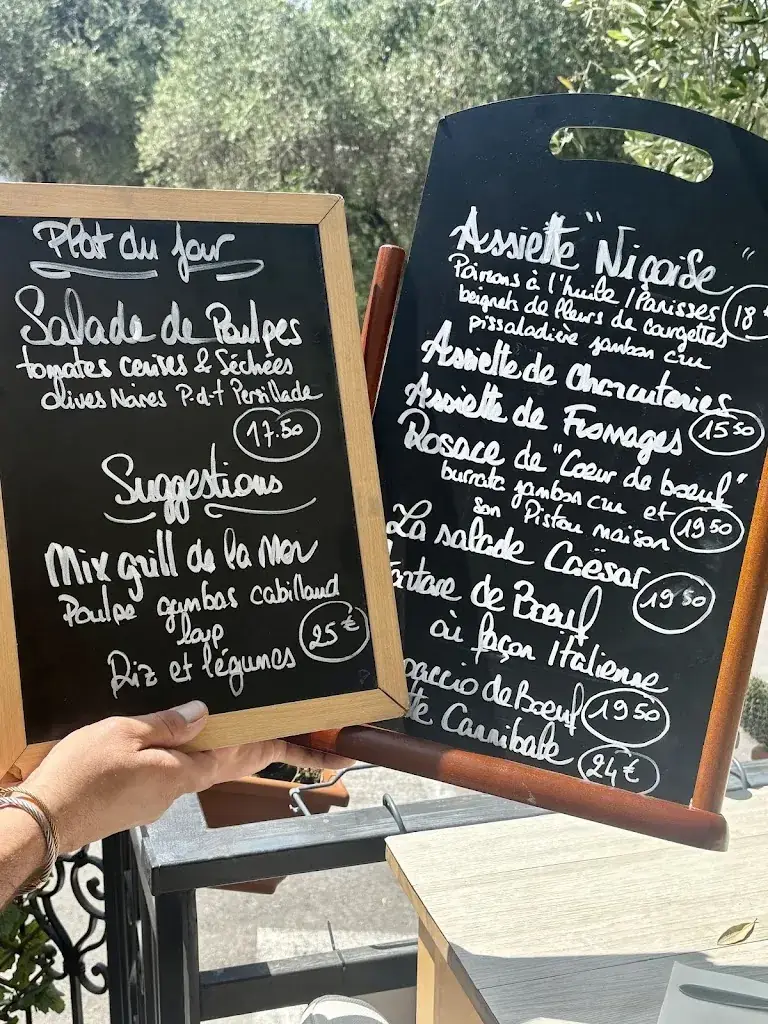 Plat du jour
Salade de Poulpes
tomates cerises & Séchées
olives Noires P.d.t Persillade
17.50
Suggestions
Mix grill de la Mer
Poulpe gambas cabillaud
loup
Riz et légumes
25€
Assiette "Niçoise"
Poivrons à l'huile / Panisses
beignets de fleurs de courgettes
pissaladière jambon cru
18€
Assiette de Charcuteries
Assiette de Fromages
15.50
Rosace de "Coeur de boeuf"
burrata jambon cru et
son Pistou maison
19.50
La salade Caesar
19.50
Tartare de Boeuf
où façon Italienne
paccio de Boeuf
19.50
te Cannibale
24€